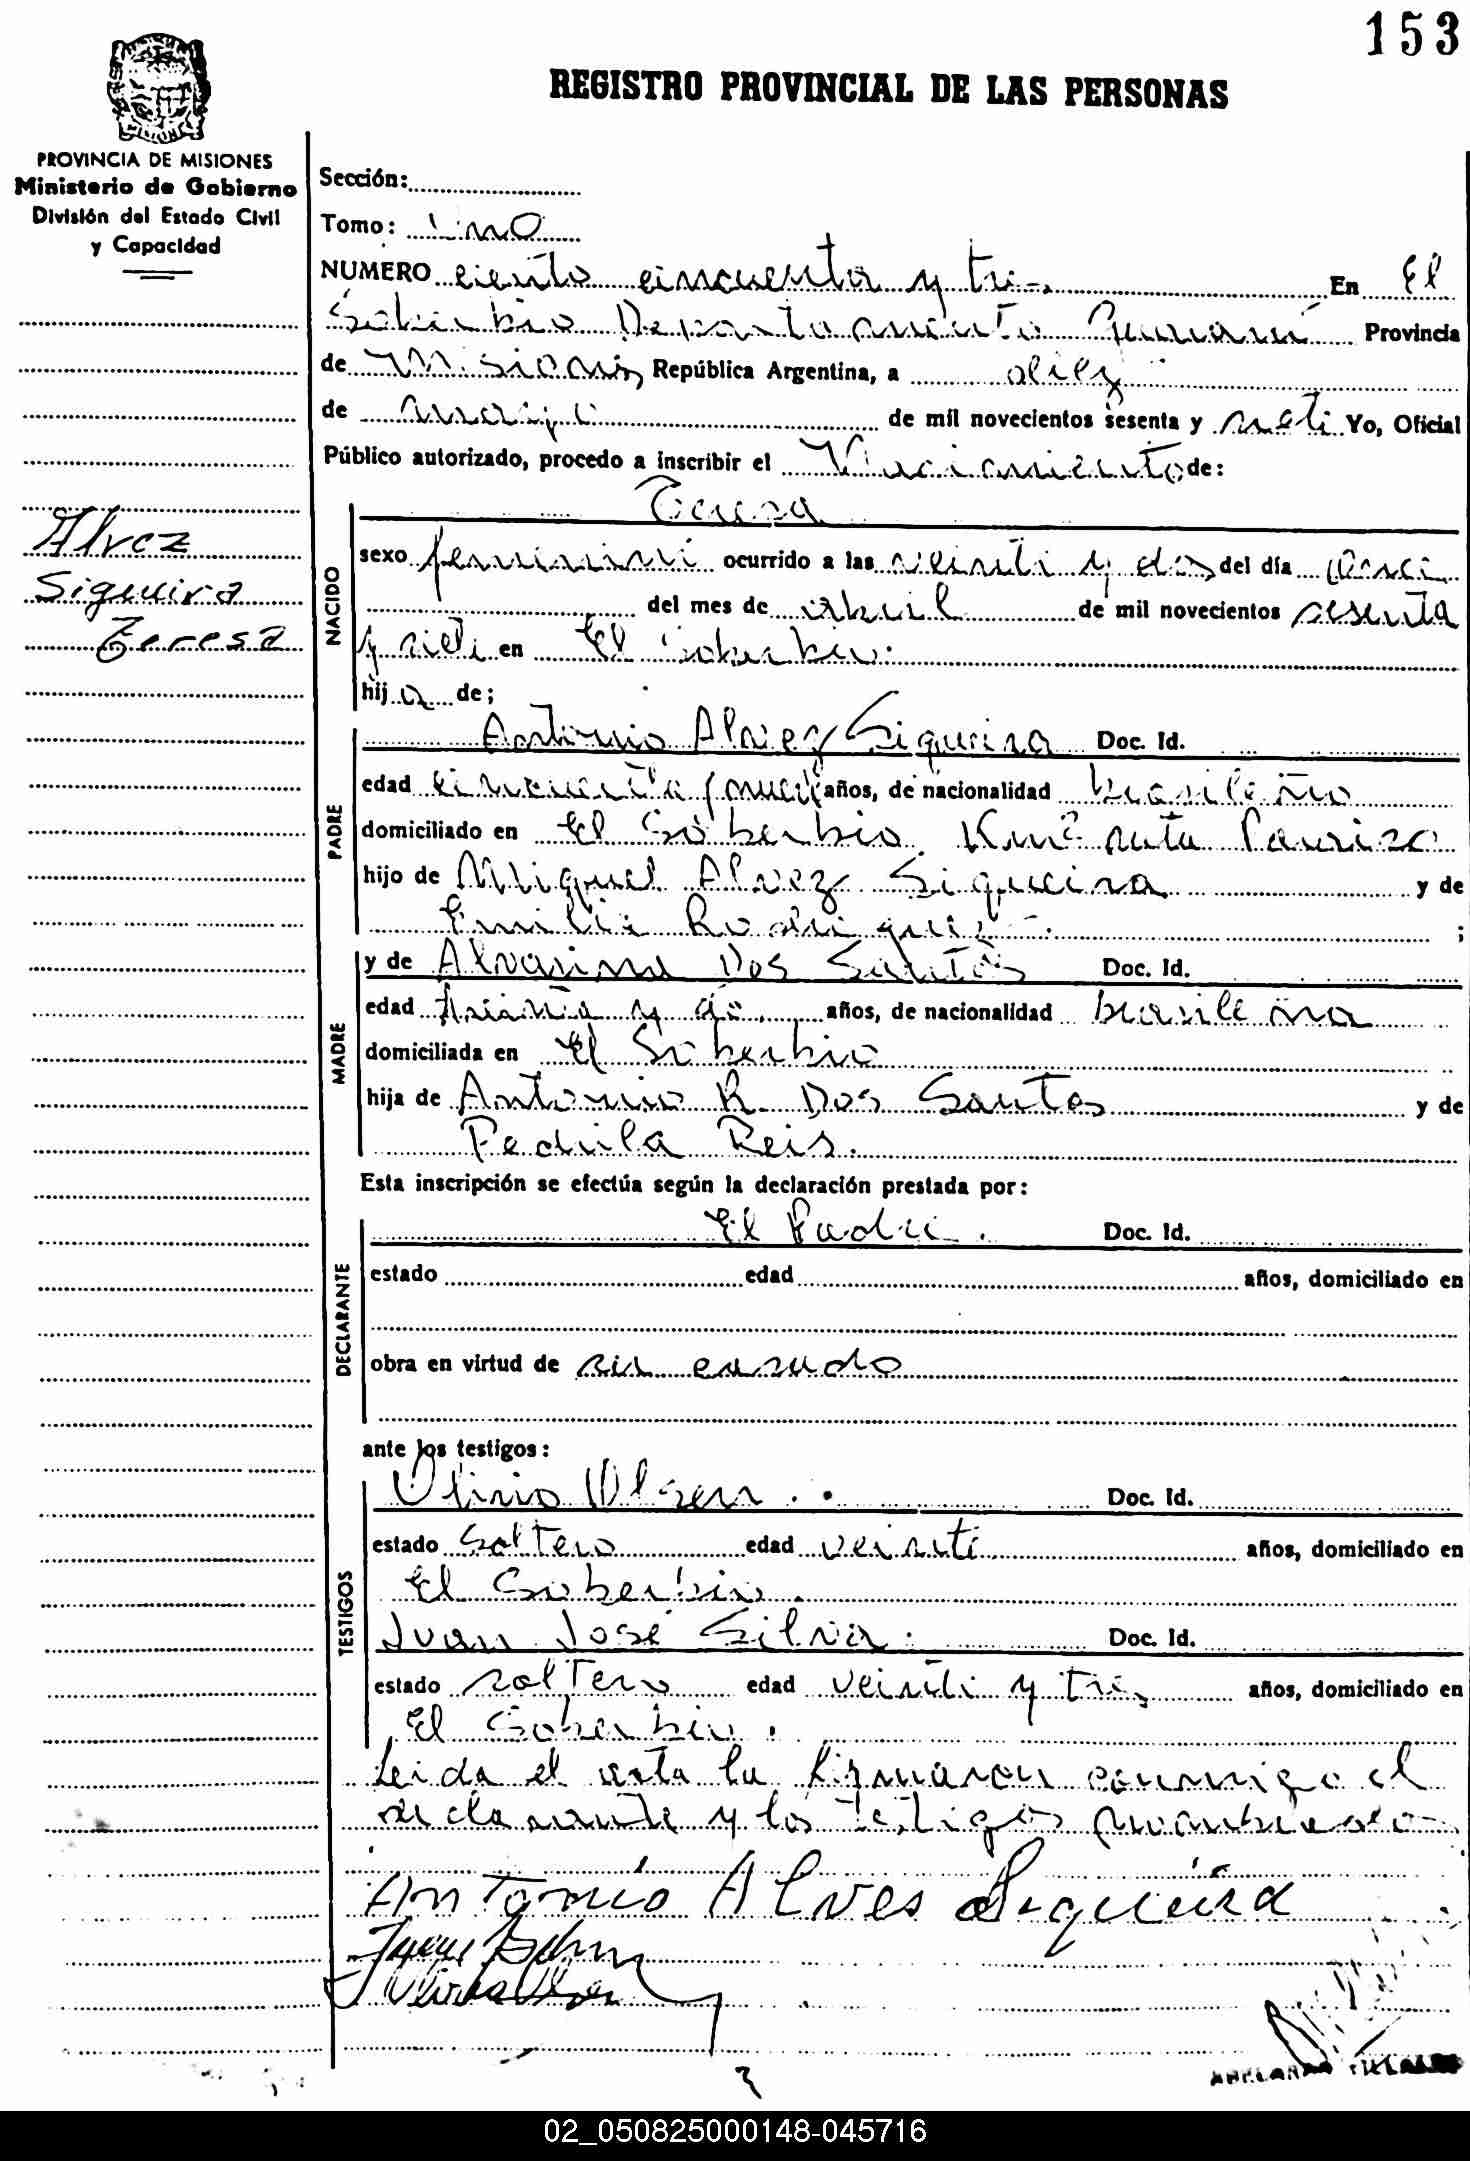 153
REGISTRO PROVINCIAL DE LAS PERSONAS
PROVINCIA DE MISIONES
Ministerio de Gobierno
División del Estado Civil
y Capacidad
Alvez
Sigueira
Teresa
Sección:
Tomo: Uno
NUMERO ciento cincuenta y tres En El
Soberbio Departamento Guaraní Provincia
de Misiones República Argentina, a diez
de mayo de mil novecientos sesenta y siete Yo, Oficial
Público autorizado, procedo a inscribir el Nacimiento de:
NACIDO
Teresa
sexo femenino ocurrido a las veinte y dos del día
del mes de abril de mil novecientos sesenta
y siete en El Soberbio.
hija de;
PADRE
Antonio Alvez Sigueira Doc. Id.
edad cincuenta años, de nacionalidad brasileño
domiciliado en El Soberbio Km 2 ruta Paraiso
hijo de Miguel Alvez Sigueira y de
Emilia Rodriguez. ;
MADRE
y de Alvarina Dos Santos Doc. Id.
edad treinta y dos años, de nacionalidad brasileña
domiciliada en El Soberbio
hija de Antonio R. Dos Santos y de
Pedrila Reis.
Esta inscripción se efectúa según la declaración prestada por:
DECLARANTE
El Padre. Doc. Id.
estado edad años, domiciliado en
obra en virtud de
ante los testigos:
TESTIGOS
Olivio Olsen. Doc. Id.
estado soltero edad veinte años, domiciliado en
El Soberbio.
Juan José Silva. Doc. Id.
estado soltero edad veinte y tres años, domiciliado en
El Soberbio.
Leida el acta la firmaron conmigo el
declarante y los testigos nombrados
Antonio Alves Siqueira
02_050825000148-045716